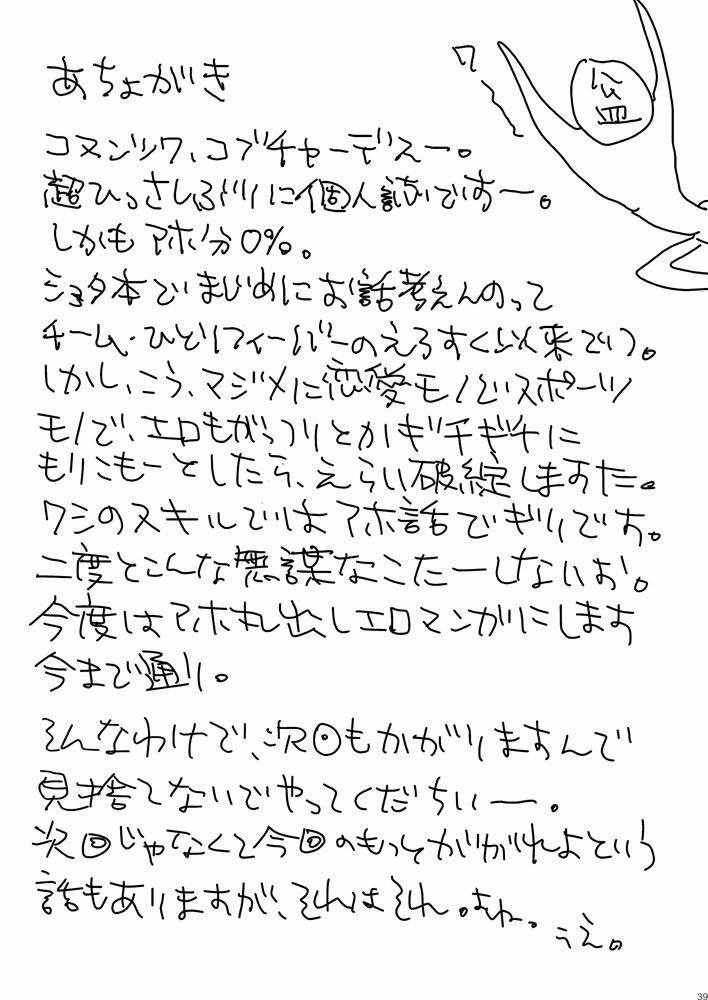 あちょがき
コヌンツワ、コブチャーデえー。
超ひっさしぶりに個人誌ですー。
しかもアホ分0%。
ショタ本でまじめにお話考えんのって
チーム・ひとりフィーバーのえろすく以来でつ。
しかし、こう、マジメに恋愛モノどいスポーツ
モノで、エロもがっつりとかギチギチに
もりこもーとしたら、えらい破綻しますた。
ワシのスキルではアホ話でぎりです。
二度とこんな無謀なこたーしないお。
今度はアホ丸出しエロマンガにします
今まで通り。
そんなわけで、次回もかがりますんで
見捨てないでやってくだちぃー。
次回じゃなくて今回のもっとががれよという
話もありますが、それはそれ。よね。
こえ。
ワ
公
皿
39